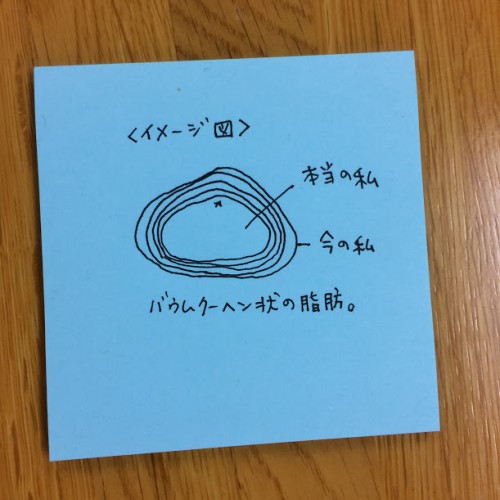 <イメージ図>
本当の私
今の私
バウムクーヘン状の脂肪。